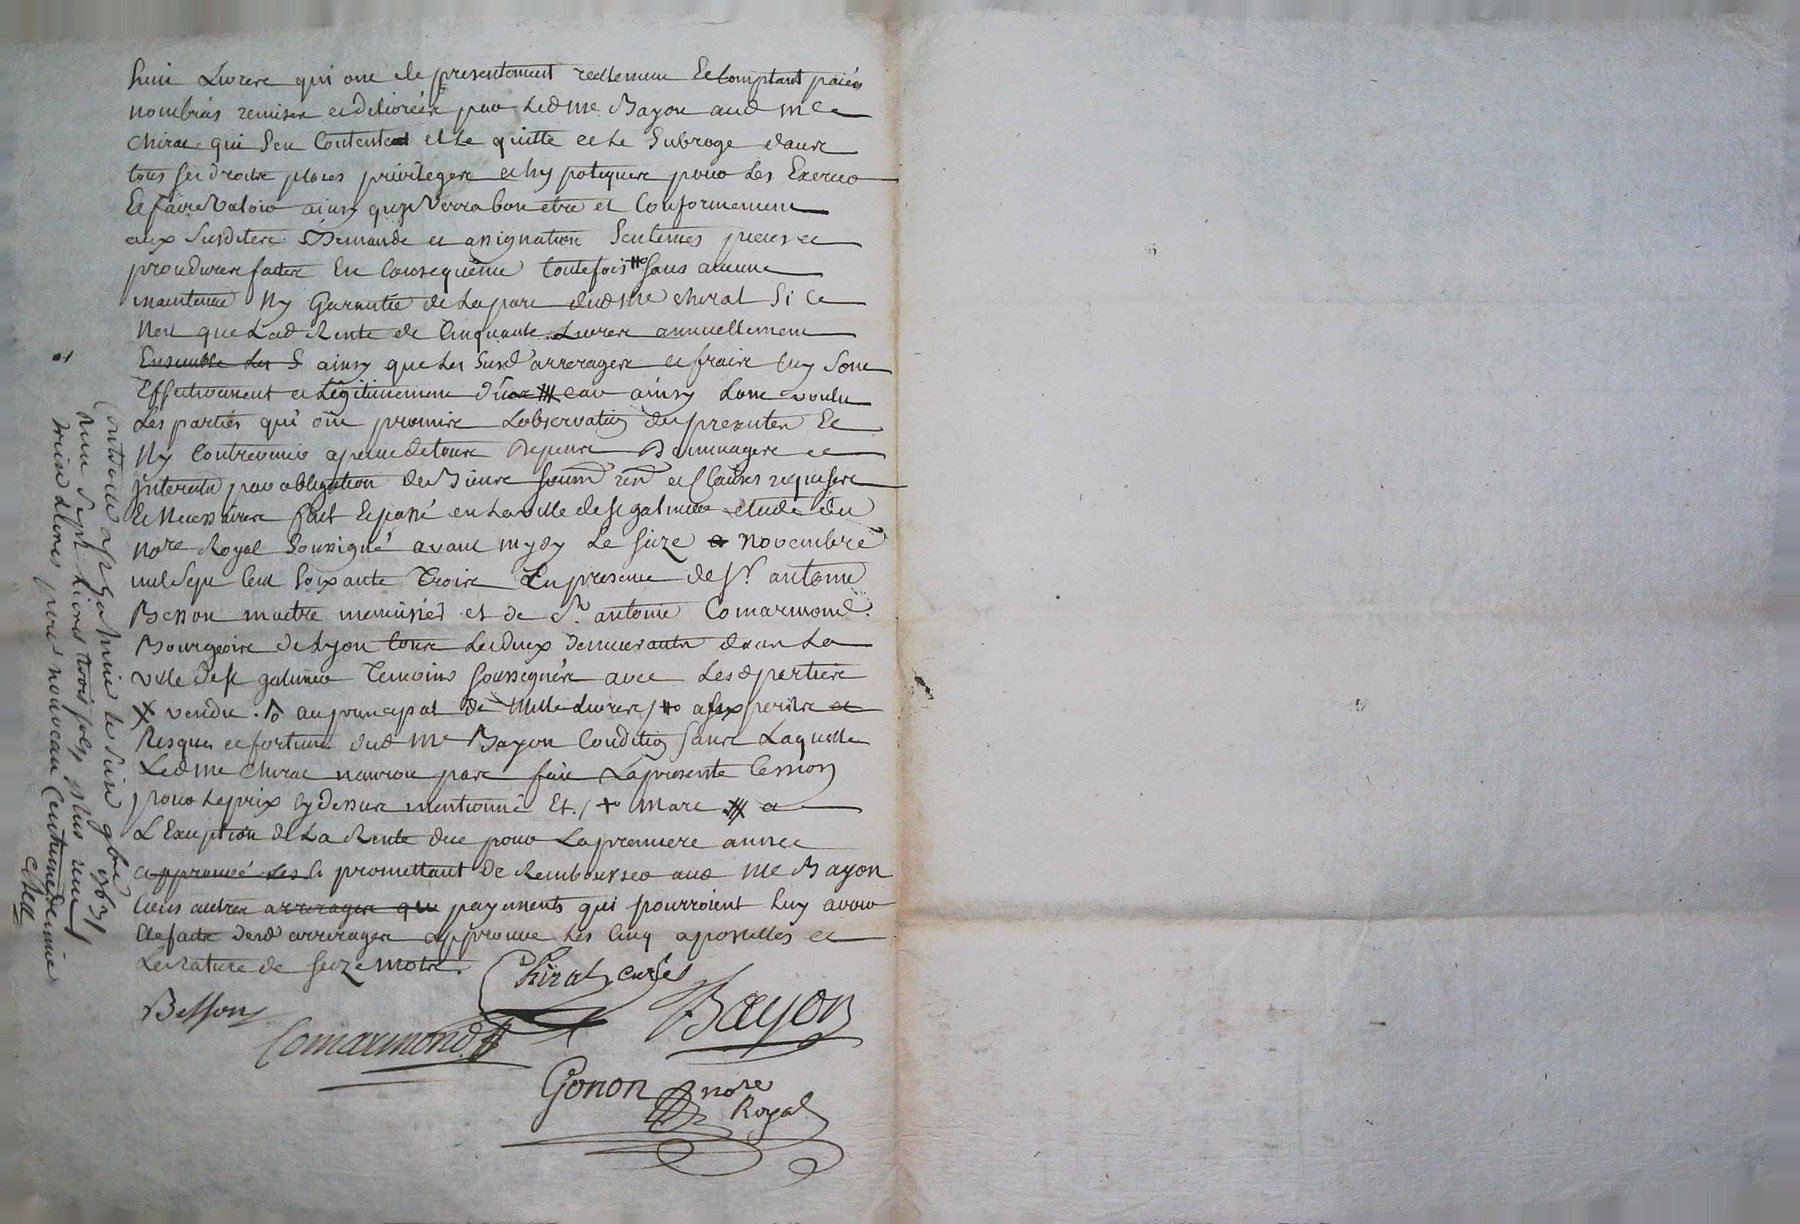 huit Livres qui ont ete presentement reellement Et Comptant paiées
nombrés remises et delivrées par Led Me Bayon aud Me
Chirat qui s'en Contente et Le quitte et Le Subroge dans
tous ses droits places privileges et hypoteques pour Les Exercer
Et faire Valoir ainsy quil Verra bon etre et Conformement
aux Susdites Demande et assignation Sentences pieces et
procedures faites En Consequence toutefois # sans aucune
maintenue Ny Garantie de La part dud Me chirat Si Ce
Nest que Lad Rente de Cinquante Livres annuellement
Ensemble Les S ainsy que Les Susd arrerages et fraix luy Sont
Effectivement et Legitimement dus # car ainsy Lont voulu
Les parties qui ont promis Lobservation des presentes Et
Ny Contrevenir a peine de tous Depens Dommages et
Interets par obligation de Biens Soumn ren et Clauses requises
Et Necessaires fait Et passé en La ville de St galmier etude du
nore Royal Soussigné avant mydy Le Seize novembre
mil Sept Cent Soixante Trois En presence de Sr. antoine
Besson maitre menuisier et de Sr. antoine Comarmond
Bourgeois de Lyon tous Les deux demeurants dans La
ville de St galmier Temoins Soussignés avec Lesd parties
X vendu. au principal de Mille Livres / # aux perils et
Risques et fortune dud Me Bayon Condition sans Laquelle
Led Me Chirat nauroit pas fait La presente Cession
pour Le prix cy dessus mentionné Et. / + Mare # a
L'Exception de La Rente due pour La premiere année
approuvé Les S promettant de Rembourser aud Me Bayon
tous autres arrerages que payements qui pourroient luy avoir
Ete faits desd arrerages approuve Les Cinq apostilles et
La rature de Seize mots.
Chirat, curé
Besson
Bayon
Comarmond
Gonon nore
Royal
Controllé a St Galmier le Seize 9bre 1763
Reçu Sept Livres trois sols plus reçu
treize Livres pour nouveau Centieme denier